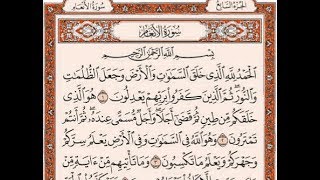 سورة الأنعام
الجزء السابع
سورة الأنعام
بسم الله الرحمن الرحيم
الحمد لله الذي خلق السموات والأرض وجعل الظلمات
والنور ثم الذين كفروا بربهم يعدلون ١ هو الذي
خلقكم من طين ثم قضى أجلا وأجل مسمى عنده ثم أنتم
تمترون ٢ وهو الله في السموات وفي الأرض يعلم سركم
وجهركم ويعلم ما تكسبون ٣ وما تأتيهم من ءاية من